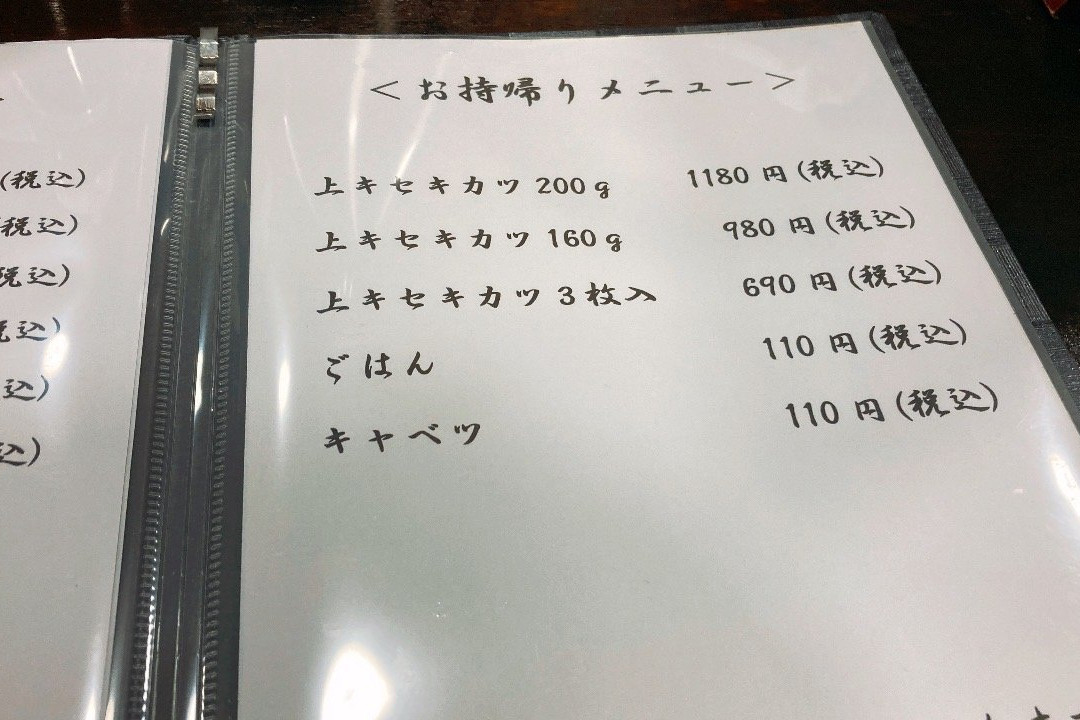 (税込)
(税込)
税込)
税込)
込)
込)
＜お持帰りメニュー＞
上キセキカツ 200g 1180 円(税込)
上キセキカツ 160g 980 円(税込)
上キセキカツ 3枚入 690 円(税込)
ごはん 110 円(税込)
キャベツ 110 円(税込)